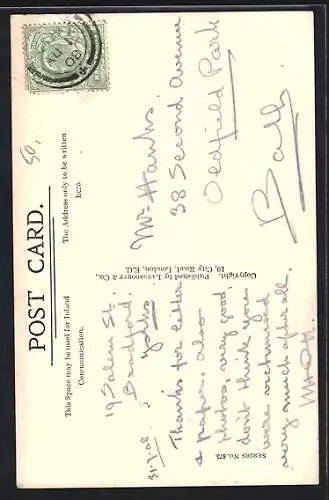 50,
POST CARD.
This Space may be used for Inland
Communication.
The Address only to be written
here.
19 Salem St.
Bradford
Yorks
31-7-08.
Thanks for letter
& paper. also
photos, very good,
don't think you
were
very much after all.
Copyright. Published by Landeker & Co.,
19, City Road, London, E.C.
SERIES No. 875
Mr Hanks.
38 Second Avenue
Oldfield Park
Bath
08